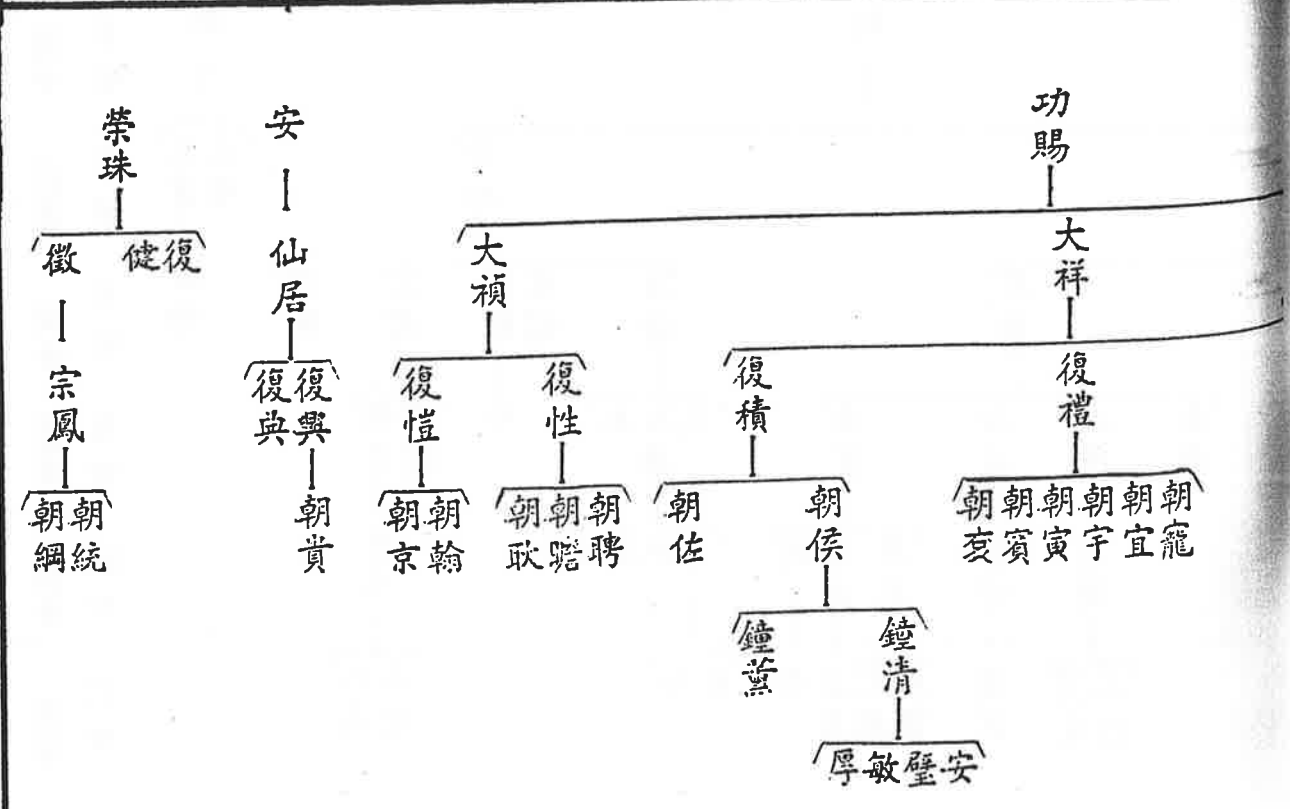 功賜
大祥
大禎
復禮
復積
復性
復愷
朝寵
朝宜
朝宇
朝寅
朝賓
朝侯
朝佐
朝聘
朝耿
朝翰
朝京
鐘清
安
敏
厚
安
仙居
復興
復典
朝貴
榮珠
復健
徵
宗鳳
朝統
朝綱